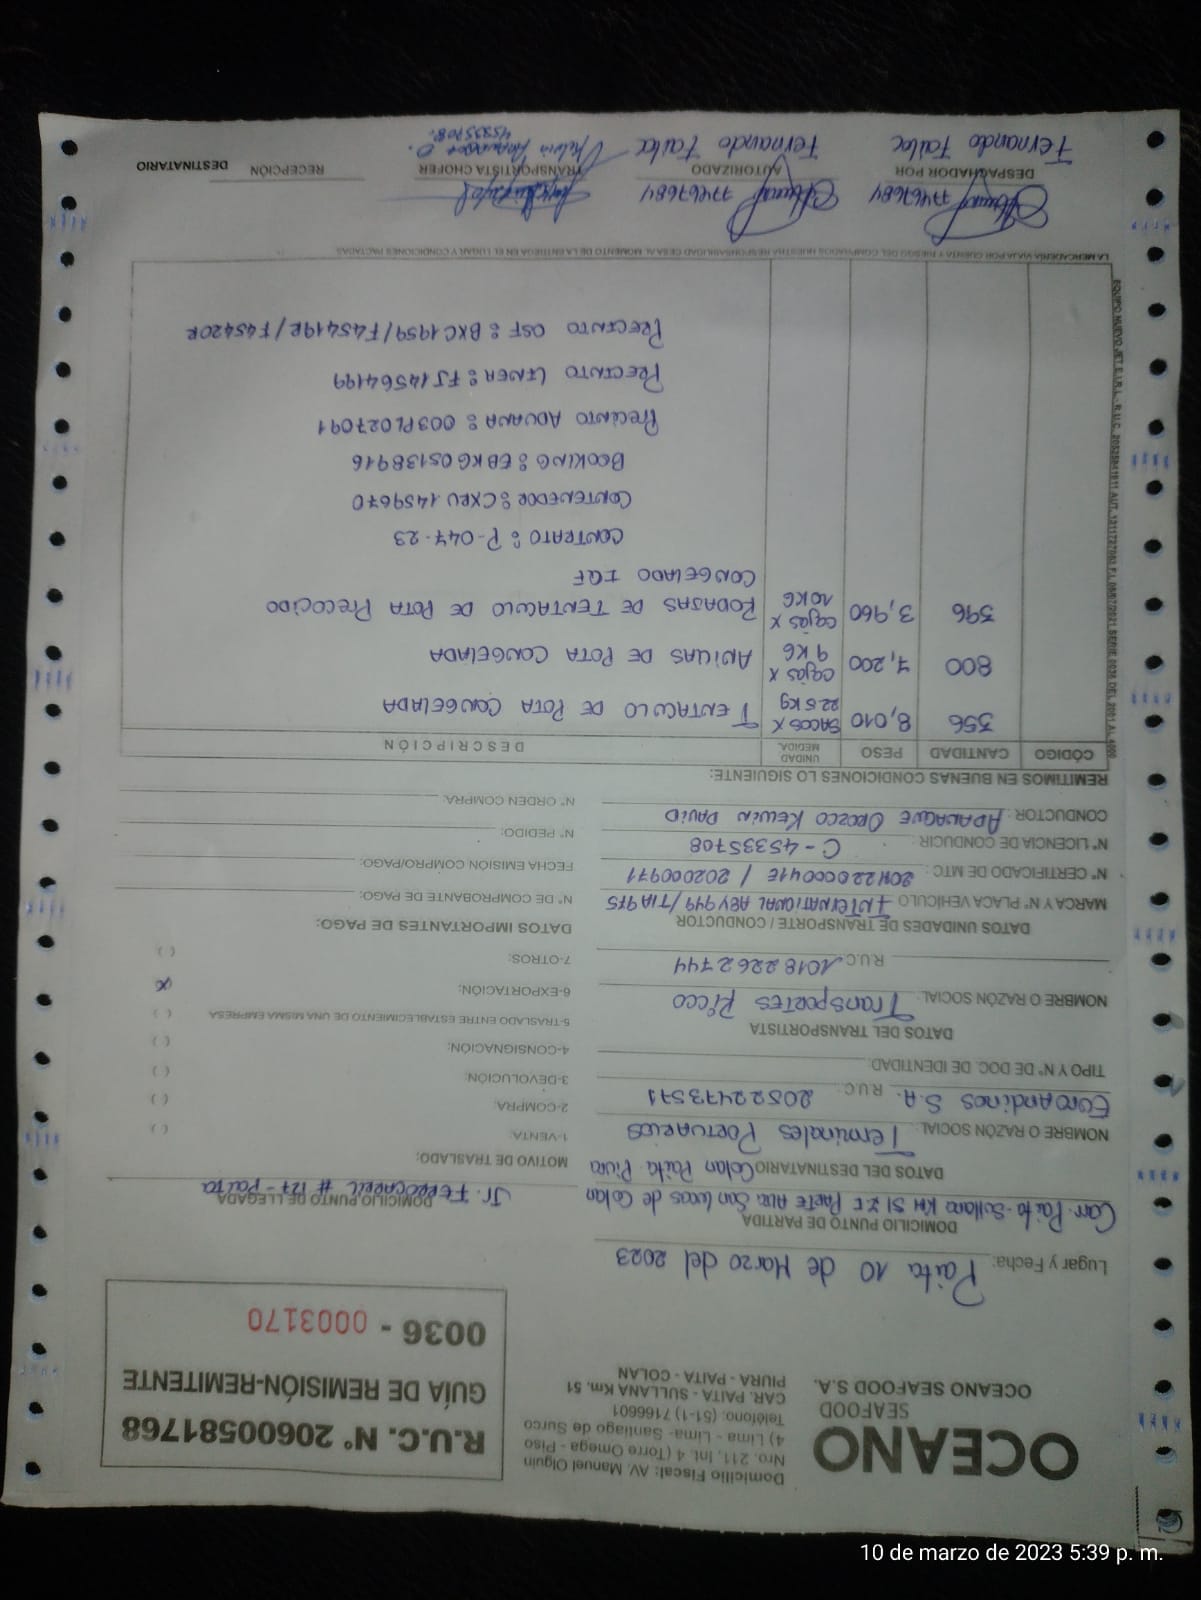 OCEANO
SEAFOOD
OCEANO SEAFOOD S.A.
Domicilio Fiscal: AV. Manuel Olguin
Nro. 211. Int. 4 (Torre Omega - Piso
4) Lima - Lima- Santiago de Surco
Teléfono: (51-1) 7166601
CAR. PAITA - SULLANA Km. 51
PIURA - PAITA - COLAN
R.U.C. N° 20600581768
GUÍA DE REMISIÓN-REMITENTE
0036 - 0003170
Lugar y Fecha: Paita 10 de Marzo del 2023
DOMICILIO PUNTO DE PARTIDA
Carr. Paita-Sullana KM 51 Z.I PARTE Alta San Lucas de Colan
Colan Paita Piura
DOMICILIO PUNTO DE LLEGADA
Jr. FERROCARRIL # 127 - PAITA
DATOS DEL DESTINATARIO
NOMBRE O RAZÓN SOCIAL: Terminales PORTUARIOS
EuroAndinos S.A. R.U.C.: 20522473571
TIPO Y N° DE DOC. DE IDENTIDAD:
DATOS DEL TRANSPORTISTA
NOMBRE O RAZÓN SOCIAL: Transportes Ricco
R.U.C. 10182262744
MOTIVO DE TRASLADO:
1-VENTA: ( )
2-COMPRA: ( )
3-DEVOLUCIÓN: ( )
4-CONSIGNACIÓN: ( )
5-TRASLADO ENTRE ESTABLECIMIENTO DE UNA MISMA EMPRESA ( )
6-EXPORTACIÓN: (X)
7-OTROS: ( )
DATOS UNIDADES DE TRANSPORTE / CONDUCTOR
MARCA Y N° PLACA VEHÍCULO INTERNATIONAL ABY 949/T1A975
N° CERTIFICADO DE MTC: 20M22000041E / 202000971
N° LICENCIA DE CONDUCIR: C-45335708
CONDUCTOR: ADANAQUE OROZCO KELWIN DAVID
DATOS IMPORTANTES DE PAGO:
N° DE COMPROBANTE DE PAGO:
FECHA EMISIÓN COMPRO/PAGO:
N° PEDIDO:
N° ORDEN COMPRA:
REMITIMOS EN BUENAS CONDICIONES LO SIGUIENTE:
CÓDIGO CANTIDAD PESO UNIDAD MEDIDA. DESCRIPCIÓN
356 8,010 SACOS X 22.5 Kg TENTACULO DE POTA CONGELADA
800 7,200 cajas X 9 KG ANILLAS DE POTA CONGELADA
396 3,960 cajas X 10 KG RODAJAS DE TENTACULO DE POTA PRECOCIDO
CONGELADO IQF
CONTRATO: P-047-23
CONTENEDOR: CXRU 1459670
BOOKING: EBKG05138916
PRECINTO ADUANA: 003PL027091
PRECINTO LINEA: FJ14564199
PRECINTO OSF: BXC1959/F45419R/F45420R
EQUIPO NUEVO JET E.I.R.L. - R.U.C. 20535941811 AUT. 1211727083 F.I. 08/07/2021 SERIE 0036 DEL 2001 AL 4000
LA MERCADERIA VIAJA POR CUENTA Y RIESGO DEL COMPRADOS NUESTRA RESPONSABILIDAD CESA AL MOMENTO DE LA ENTREGA EN EL LUGAR Y CONDICIONES PACTADAS
77467684 77467684
DESPACHADOR POR AUTORIZADO TRANSPORTISTA CHOFER RECEPCIÓN DESTINATARIO
Fernando Failoc Fernando Failoc
45335708.
10 de marzo de 2023 5:39 p. m.